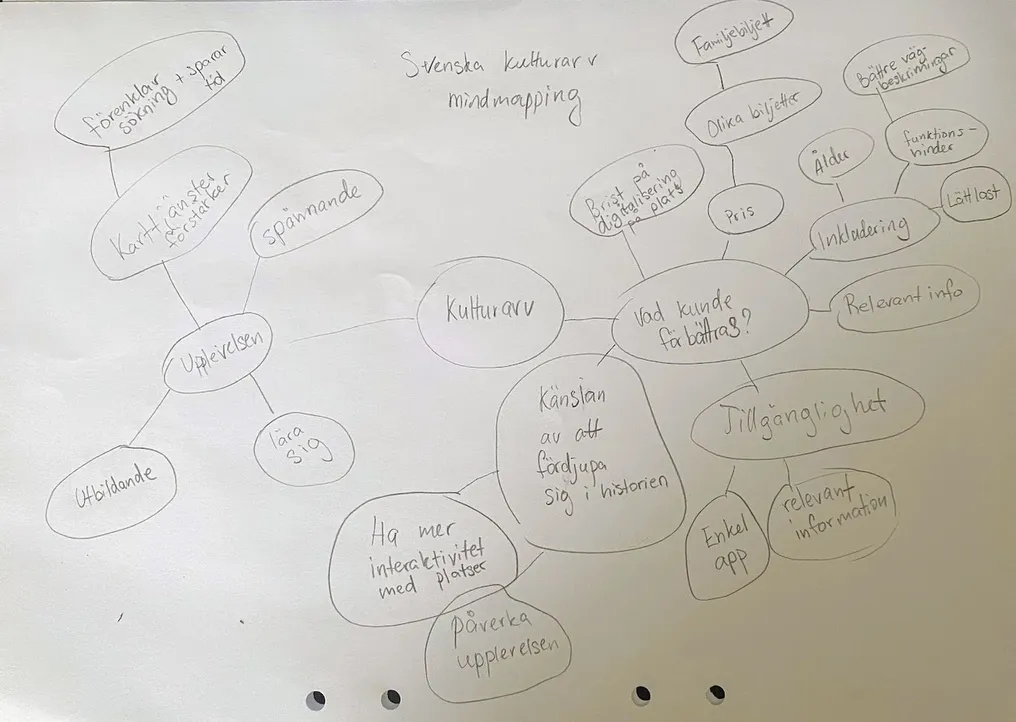 Svenska kulturarv
mindmapping
förenklar
sökning + sparar
tid
Karttjänster
förstärker
spännande
Upplevelsen
Utbildande
lära
sig
Kulturarv
Vad kunde
förbättras?
Brist på
digitalisering
på plats
Familjebiljett
Olika biljetter
Pris
Ålder
Bättre väg-
beskrivningar
funktions-
hinder
Lättläst
Inkludering
Relevant info
Tillgänglighet
Enkel
app
relevant
information
Känslan
av att
fördjupa
sig i historien
Ha mer
interaktivitet
med platser
påverka
upplevelsen